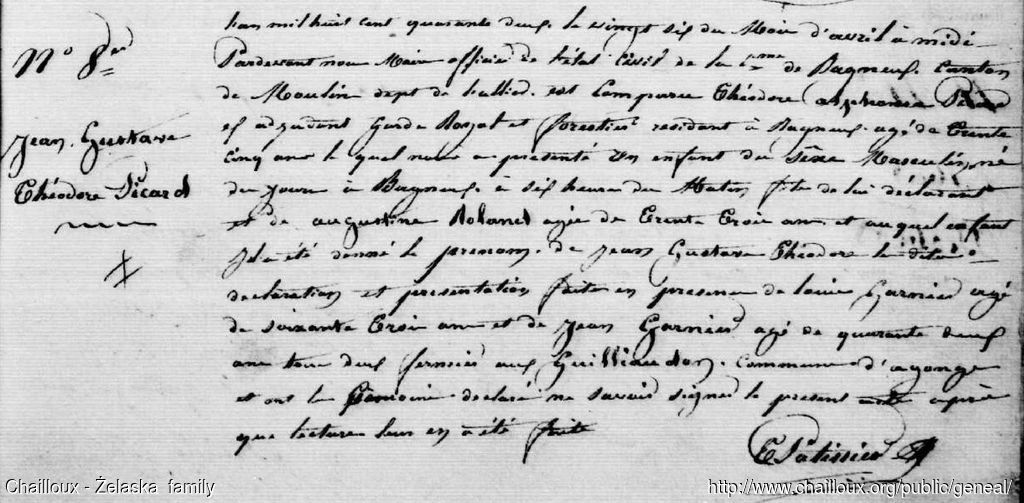 N° 8
Jean Gustave
Théodore Picard
Lan mil huit cent quarante deux le vingt six du Mois d'avril à midi
Pardevant nous Maire officier de l'état Civil de la Cme de Bagneux canton
de Moulin dept de l'allier est Comparu Théodore alphonse Picard
adjudant Garde Royal et forestier residant à Bagneux agé de Trente
Cinq ans le quel nous a presenté un enfant du sexe Masculin né
du jour à Bagneux à six heures du Matin fils de lui déclarant
et de augustine Roland agée de Trente Trois ans et auquel enfant
il a été donné le prenom de Jean Gustave Théodore le dite
declaration et presentation faite en presence de louis Garnier agé
de soixante Trois ans et de Jean Garnier agé de quarante deux
ans tous deux fermier aux Guilliaudon commune d'agonge
et ont le temoins declaré ne savoir signer le present acte après
que lecture leur en a été faite
Chailloux - Żelaska family
http://www.chailloux.org/public/geneal/